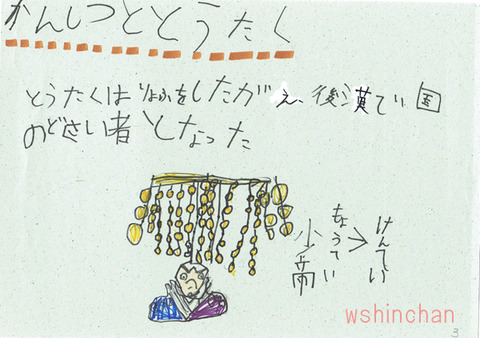 かんしつととうたく
とうたくはりょふをしたがえ、後漢てい国
のどさい者となった
けんてい
ちょうてい
少帝
wshinchan
3